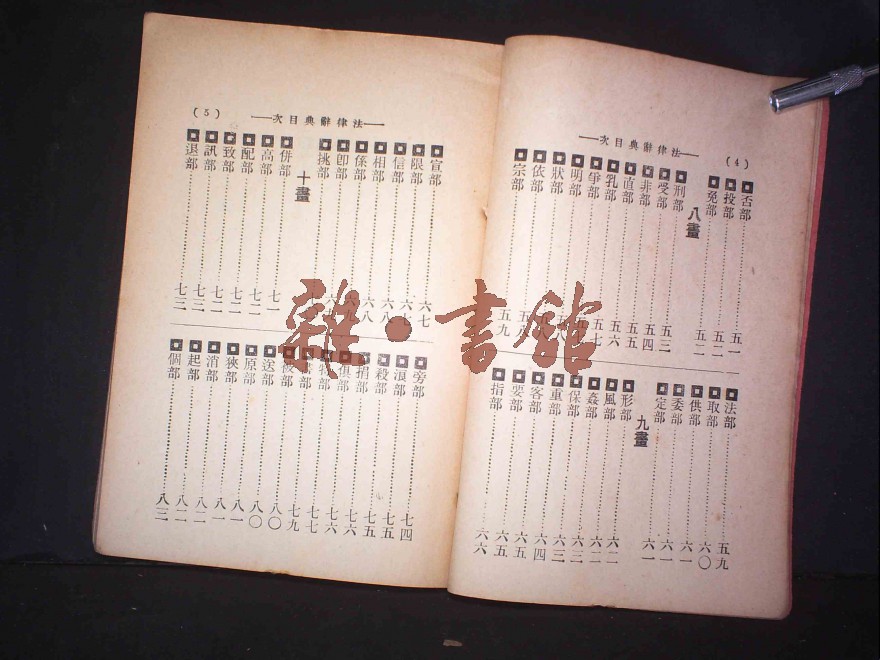 (4)
法律辭典目次
否部 五一
投部 五二
免部 五二
八畫
刑部 五三
受部 五四
非部 五四
直部 五五
乳部 五六
爭部 五七
明部
狀部
依部
宗部 五九
法部 五九
取部 六〇
供部 六一
委部 六一
定部 六一
九畫
形部 六二
風部 六二
姦部 六二
保部 六三
重部 六三
客部 六四
要部 六五
指部 六五
六六
(5)
法律辭典目次
宣部 六七
限部
信部
相部 六八
係部 六八
卽部
挑部
十畫
併部 七一
高部 七一
配部 七二
致部 七二
訊部 七二
退部 七三
旁部 七四
浪部 七五
殺部 七五
捐部 七五
俱部 七六
特部 七六
被部 七七
送部 八〇
原部 八〇
狹部 八一
消部 八一
起部 八二
個部 八三
雜·書館